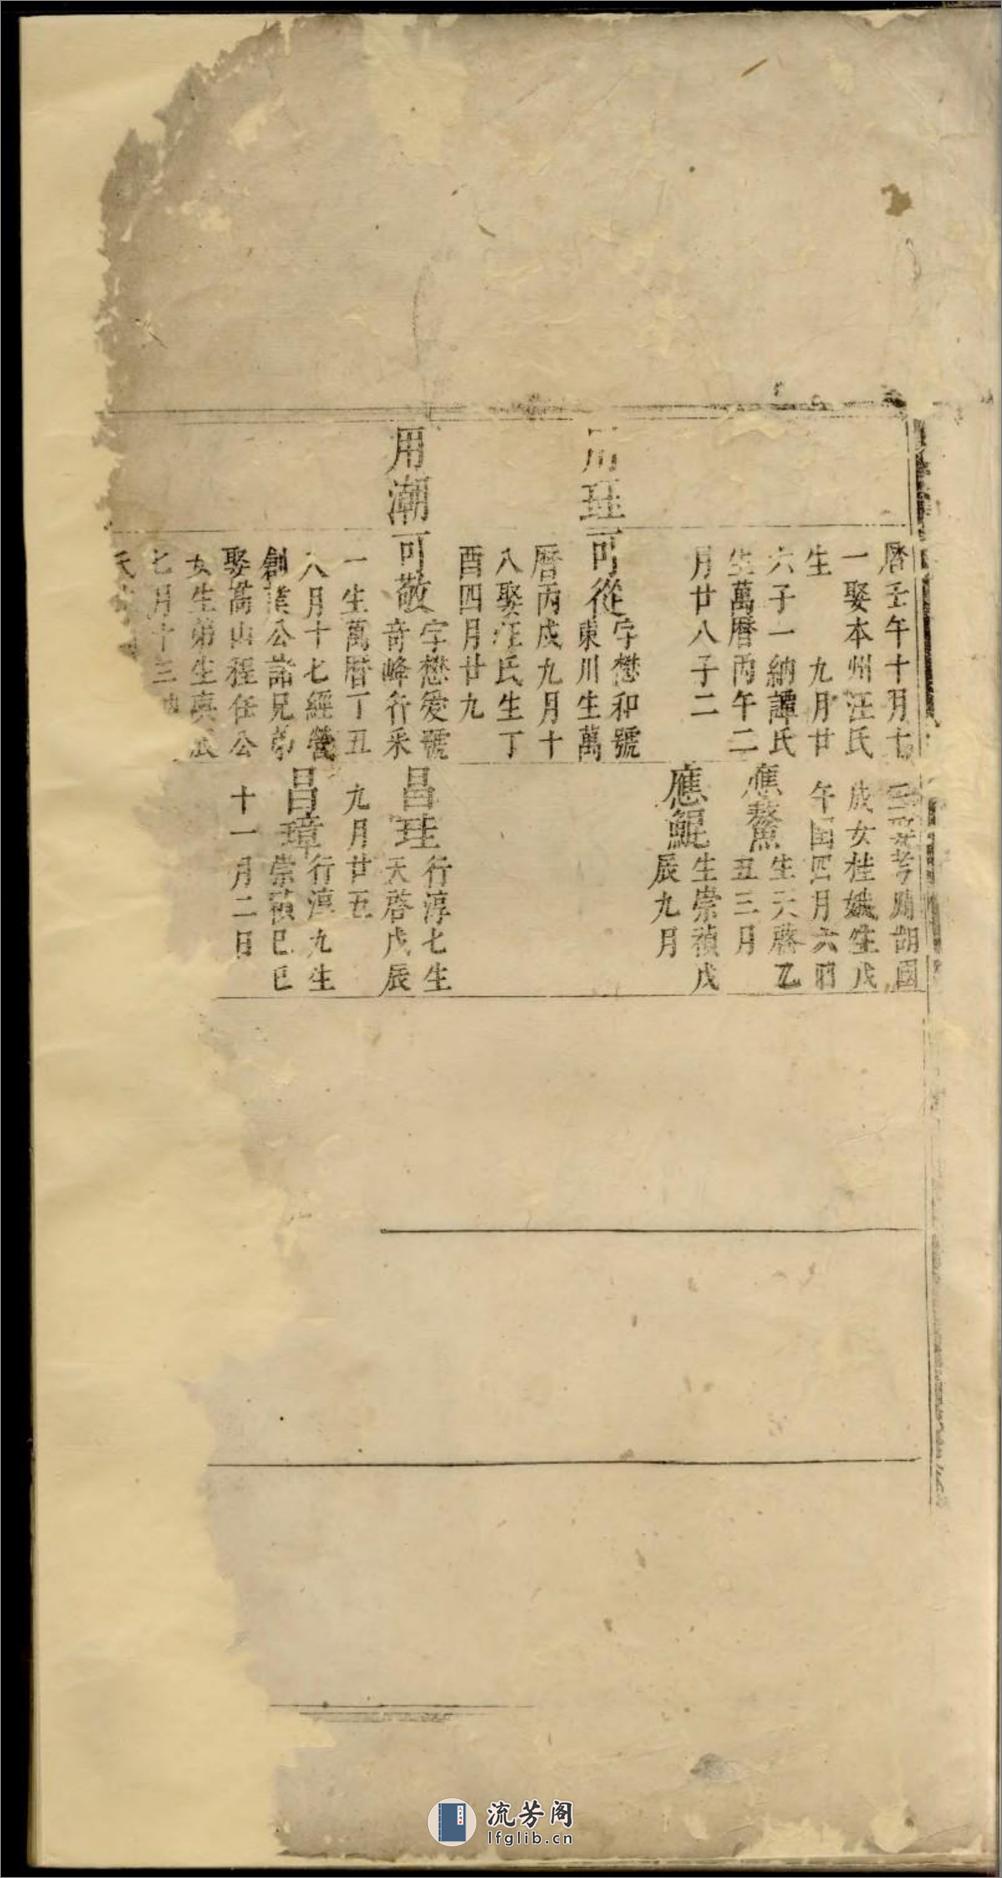 用珪
用潮
曆壬午十月七
一娶本州汪氏
生 九月廿
六子一納譚氏
生萬曆丙午二
月廿八子二
可從字懋和號
東川生萬
曆丙戌九月十
八娶汪氏生丁
酉四月廿九
可敬字懋爱號
竒峰行釆
一生萬曆丁丑
八月十七經營
創業公諸兄弟
娶髙山程任公
女生弟生真辰
七月十三
氏
胡國
成女桂娥生戊
午閏四月六
應鰲生天啓乙
丑三月
應鯤生崇禎戊
辰九月
昌珪行淳七生
天啓戊辰
九月廿五
昌璋行淳九生
崇禎己巳
十一月二日
流芳阁
lfglib.cn